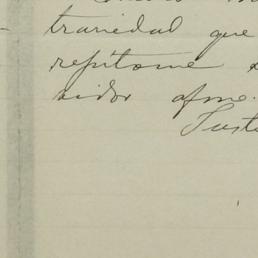 trariedad que
repítome
vidor afmo.
Justo